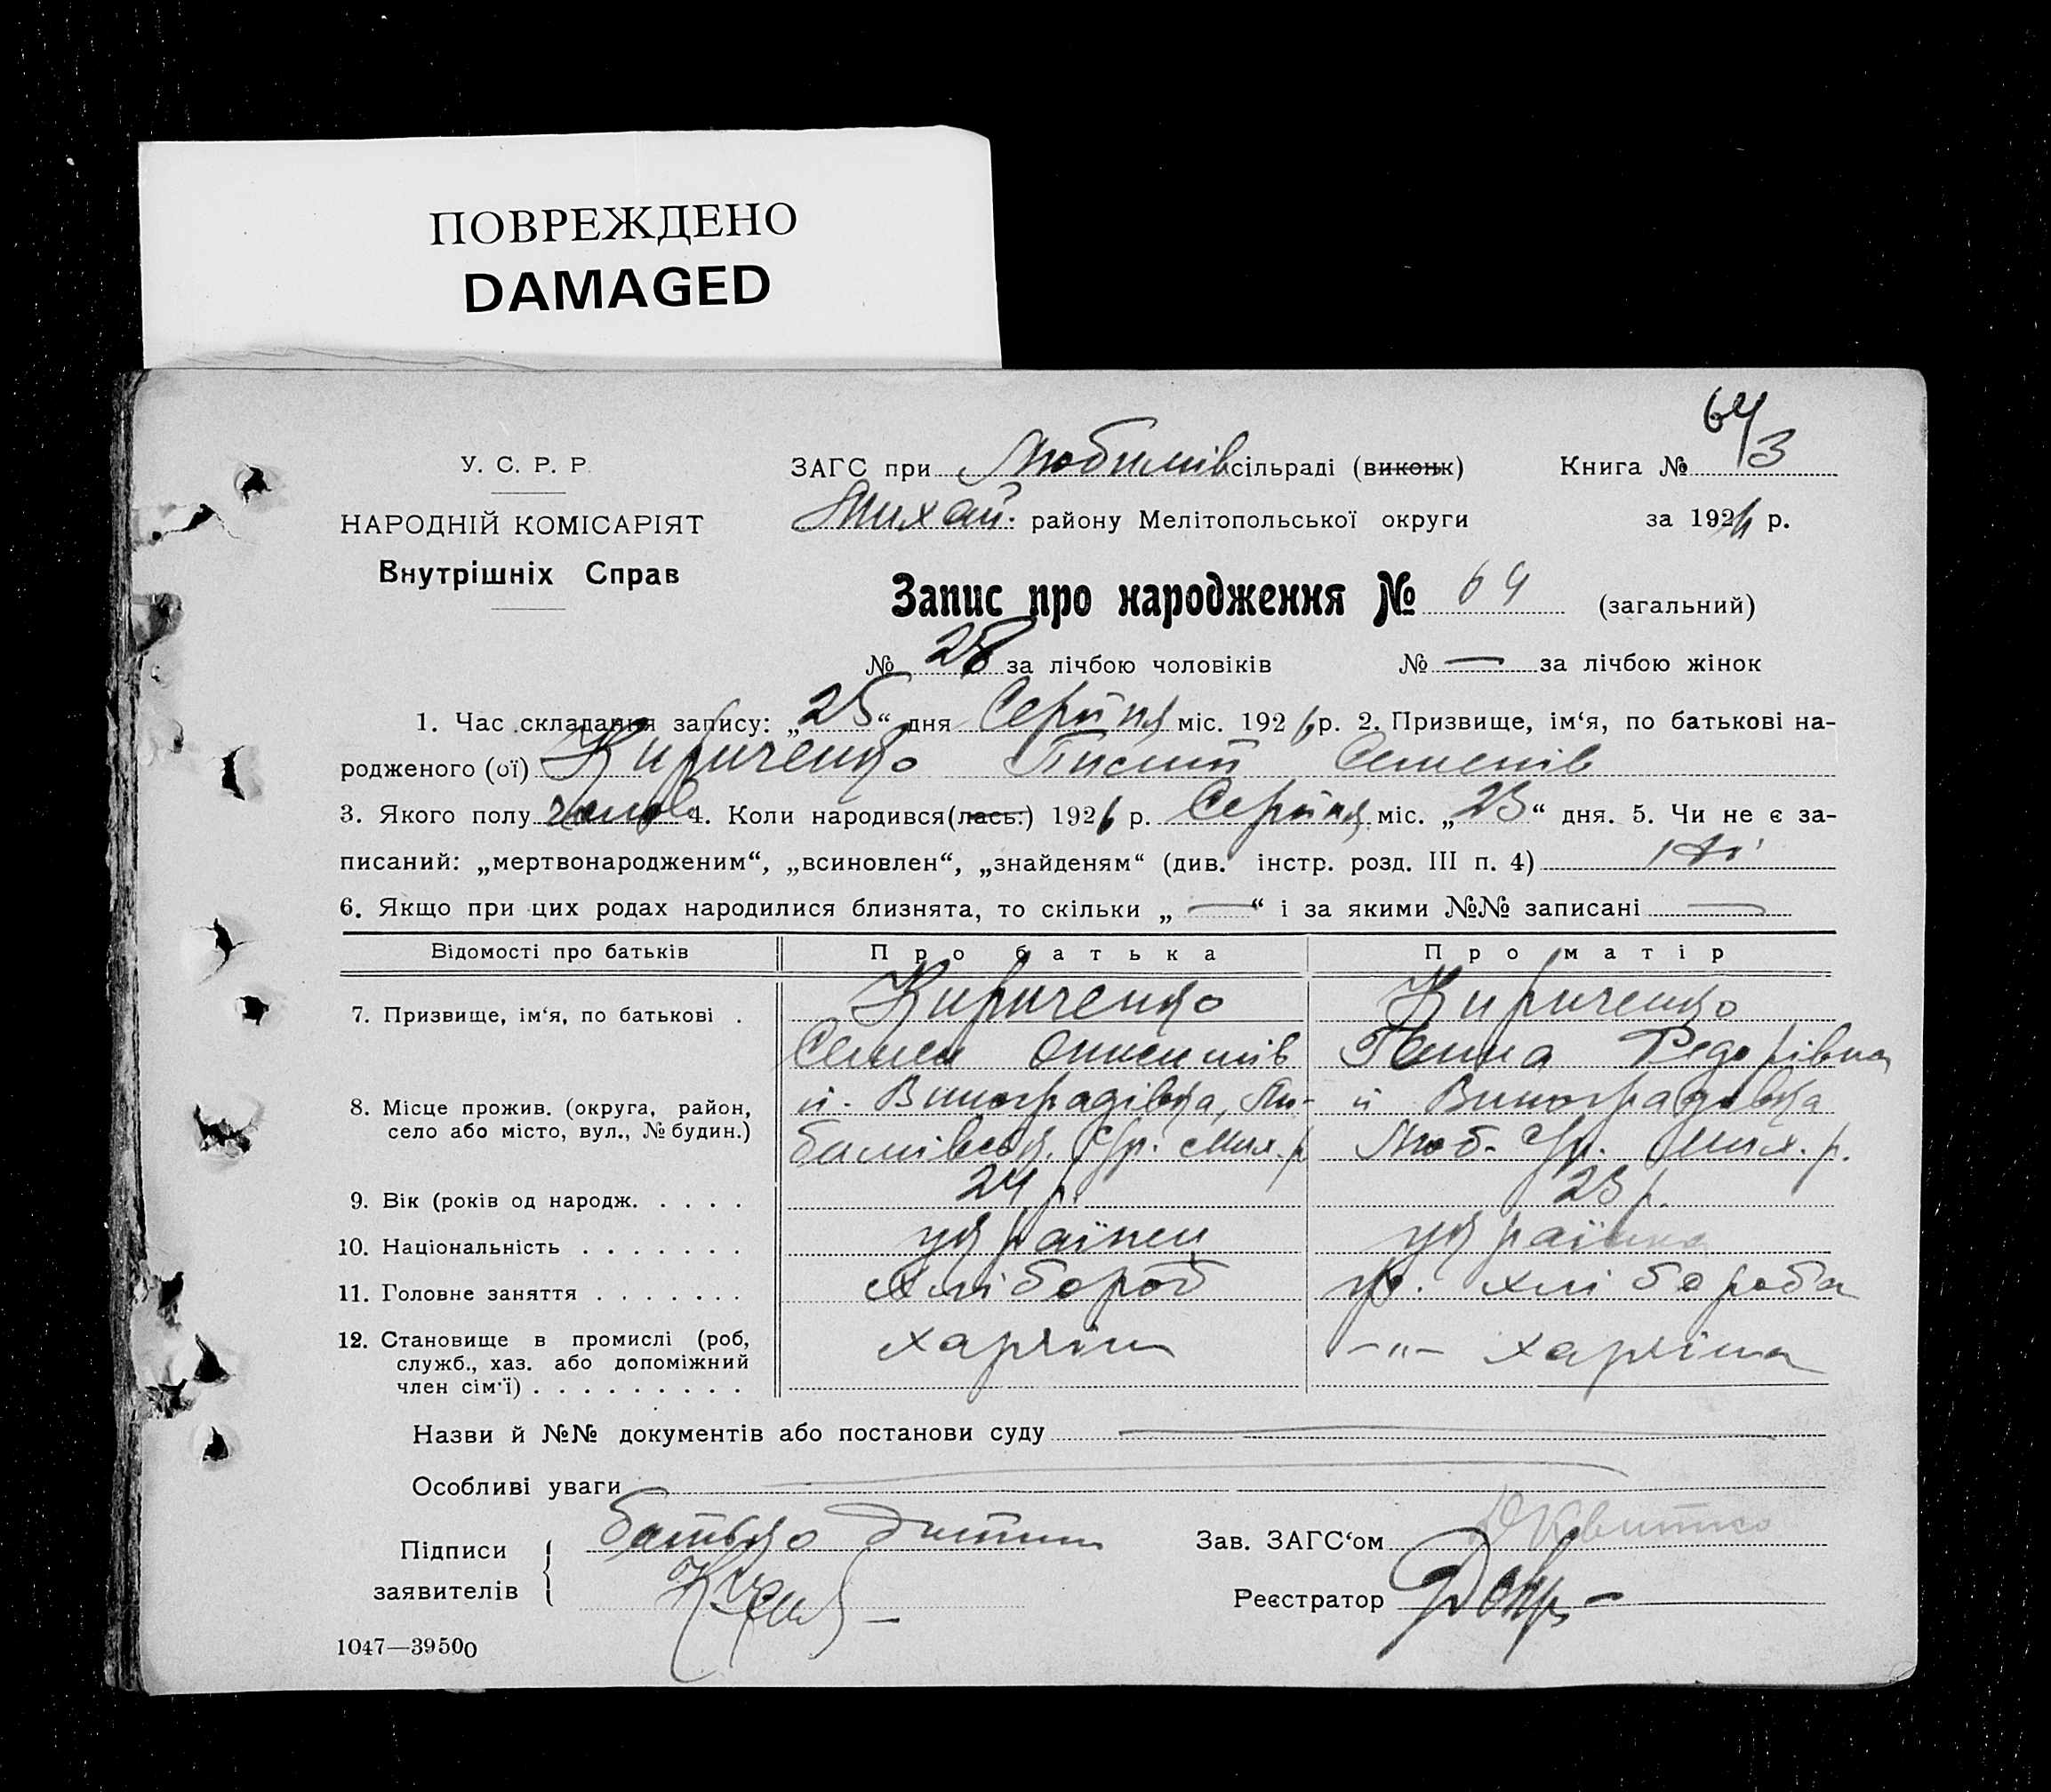 ПОВРЕЖДЕНО
DAMAGED
64/3
У. С. Р. Р.
ЗАГС при Любимівсільраді (виконк) Книга №
НАРОДНІЙ КОМІСАРІЯТ
Михай. району Мелітопольської округи за 1926 р.
Внутрішніх Справ
Запис про народження № 64 (загальний)
№ 28 за лічбою чоловіків № — за лічбою жінок
1. Час складання запису: „25“ дня Серпня міс. 1926 р. 2. Призвище, ім‘я, по батькові на-
родженого (ої) Кириченко Семенів
3. Якого полу чолов 4. Коли народився(лась:) 1926 р. Серпня міс. „23“ дня. 5. Чи не є за-
писаний: „мертвонародженим“, „всиновлен“, „знайденям“ (див. інстр. розд. III п. 4) ні
6. Якщо при цих родах народилися близнята, то скільки „—“ і за якими №№ записані —
Відомості про батьків Про батька Про матір
7. Призвище, ім‘я, по батькові . Кириченко Кириченко
Семен Федорівна
8. Місце прожив. (округа, район, село або місто, вул., № будин.) Виноградівка, Лю- Виноградівка
бимівськ. с/р. Мих. р Люб. с/р. Мих. р.
9. Вік (років од народж. . . . . 24 р. 23 р.
10. Національність . . . . . . . українец українка
11. Головне заняття . . . . . . . хлібороб хлібороба
12. Становище в промислі (роб, служб., хаз. або допоміжний член сім‘ї) . . . . . . . . . -"-
Назви й №№ документів або постанови суду —
Особливі уваги —
Підписи заявителів батько дитини
Зав. ЗАГС‘ом
Реєстратор
1047—39500